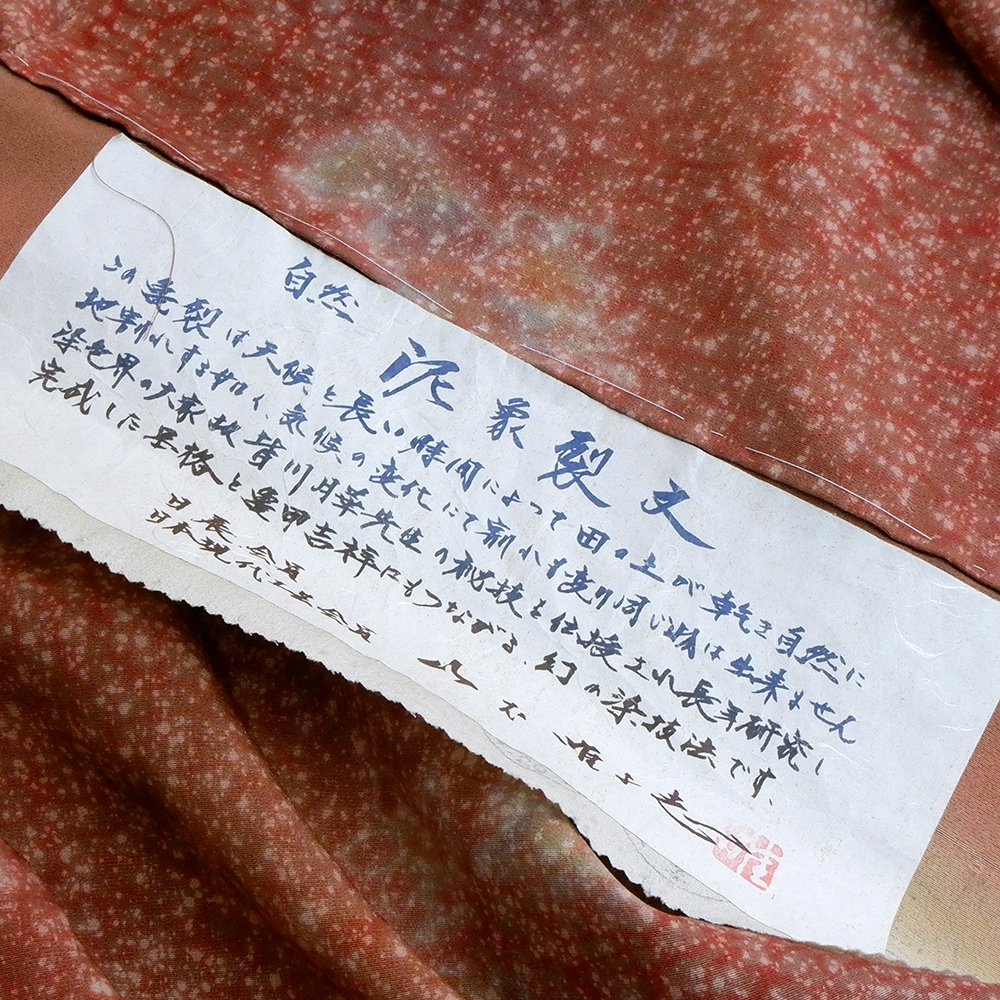 自然 泥象裂文
この亀裂は天候と長い時間によって田の土が乾き自然に
地割れする如く、気候の変化にて割れも変り同じ は出来ません
染色界の大家故皆川月華先生の秘技を伝授され長年研究し
完成した品格と亀甲吉祥にもつながる、幻の染技法です、
日展会員
日本現代工芸会員